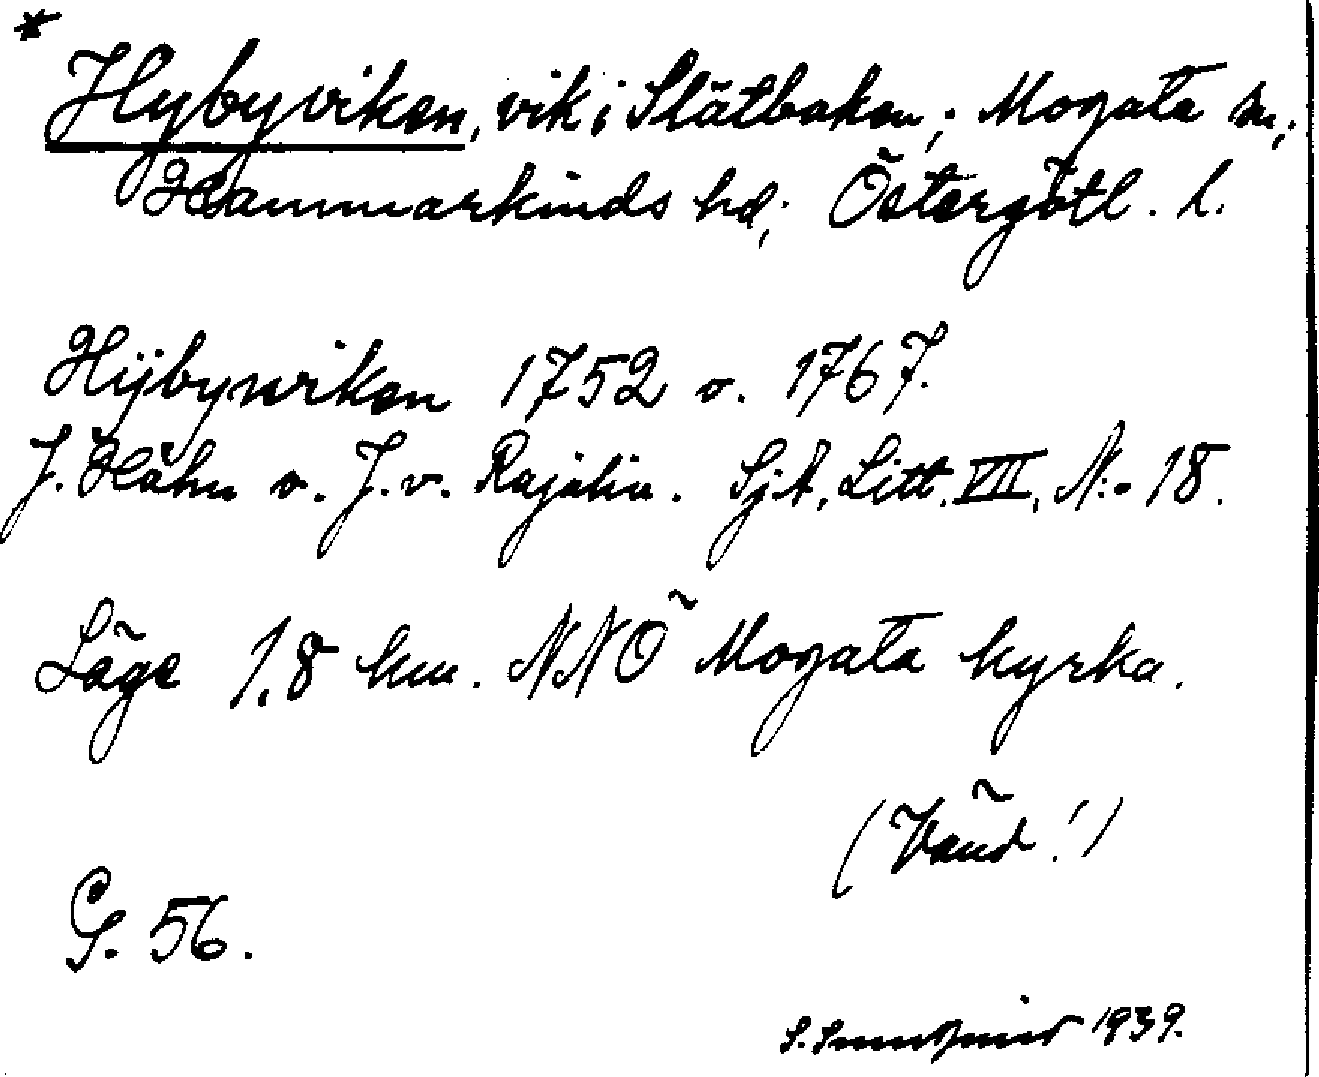 *
Hybyviken, vik i Slätbaken; Mogata sn;
Hammarkinds hd; Östergötl. l.
Hÿbywiken 1752 o. 1767.
J. Hähn o. J. v. Rajalin. SjA, Litt. VII, N:o 18.
Läge 1,8 km. NNÖ Mogata kyrka.
(Vänd!)
G. 56.
S. 1939.